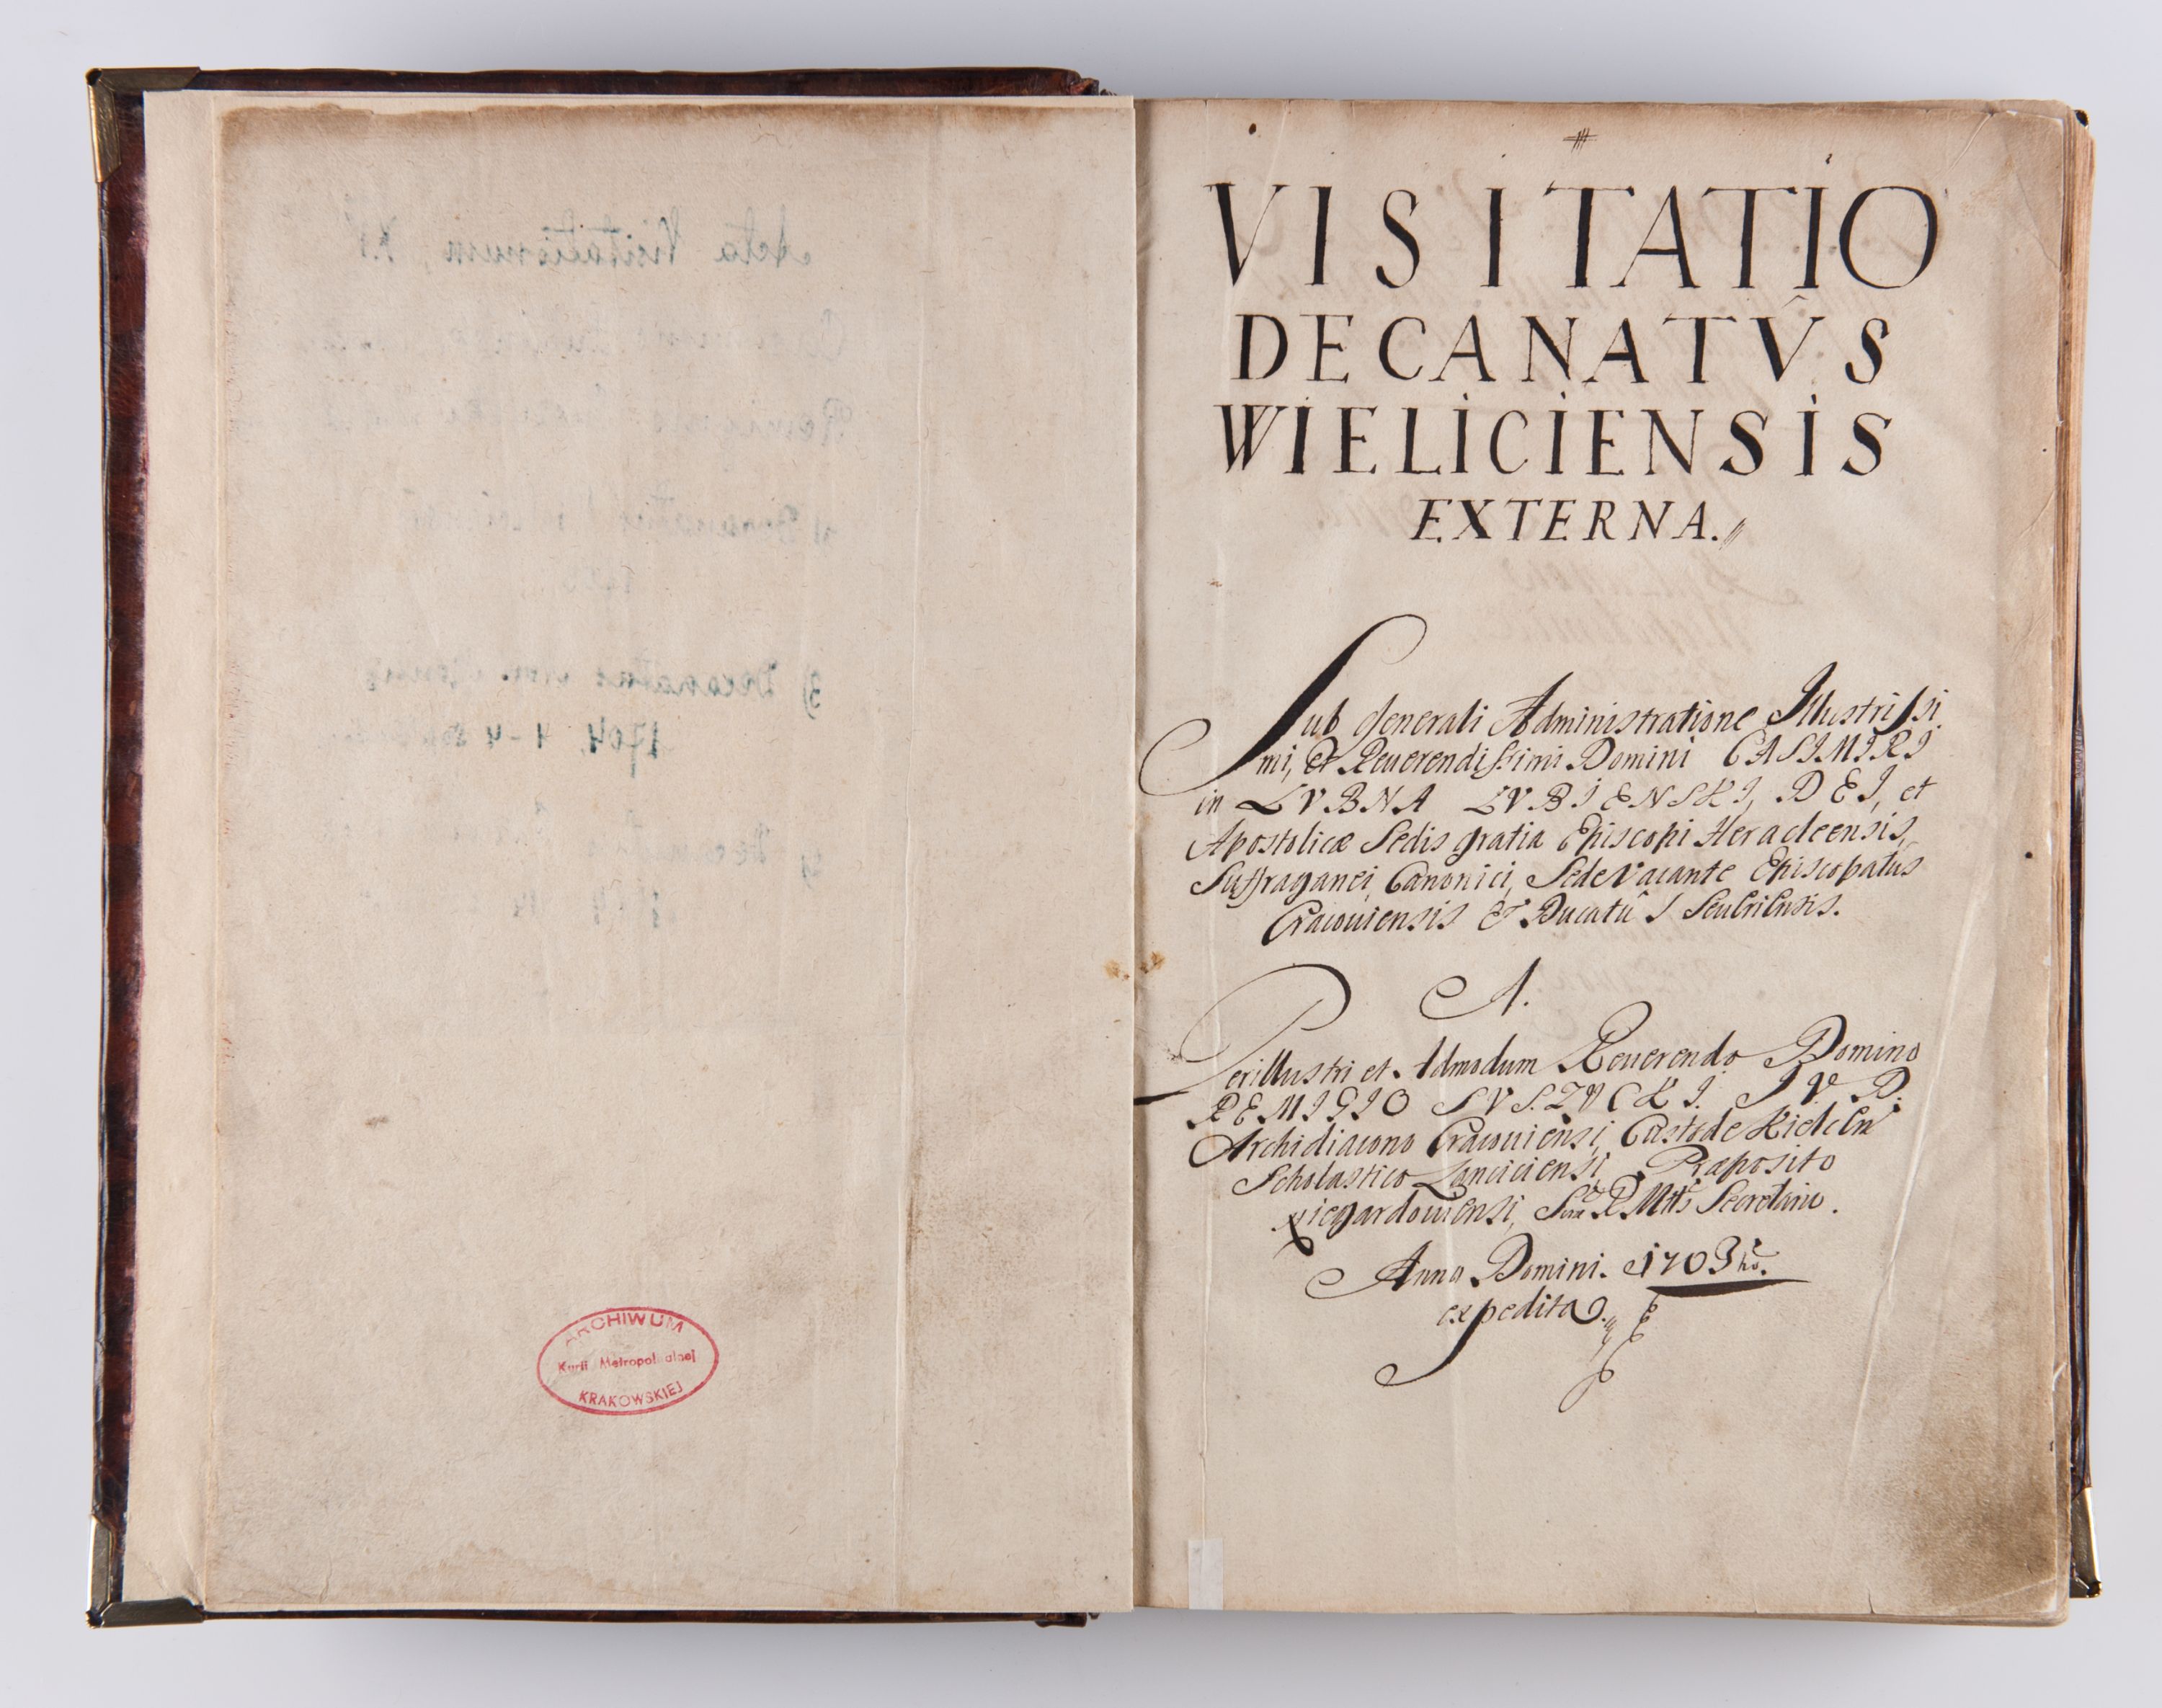 Acta Visitationum
3) Decanatus
1704, 4-4
ARCHIWUM
Kurii Metropolitalnej
KRAKOWSKIEJ
VISITATIO
DECANATVS
WIELICIENSIS
EXTERNA.
Sub Generali Administratione Illustrissi
mi, et Reuerendissimi Domini CASIMIRI
in LVBNA LVBIENSKI, DEI, et
Apostolicæ Sedis gratia Episcopi Heracleensis,
Suffraganei, Canonici, Sede Vacante Episcopatûs
Cracouiensis et Ducatûs Seueriensis.
A.
Perillustri et Admodum Reuerendo Domino
REMIGIO SVSZYCKI. I. V. D.
Archidiacono Cracouiensi, Custode Kielcen
Scholastico Lanciciensi, Præposito
Xiegardouiensi, Suæ R. Mttis Secretario.
Anno Domini. 1703
expedita.